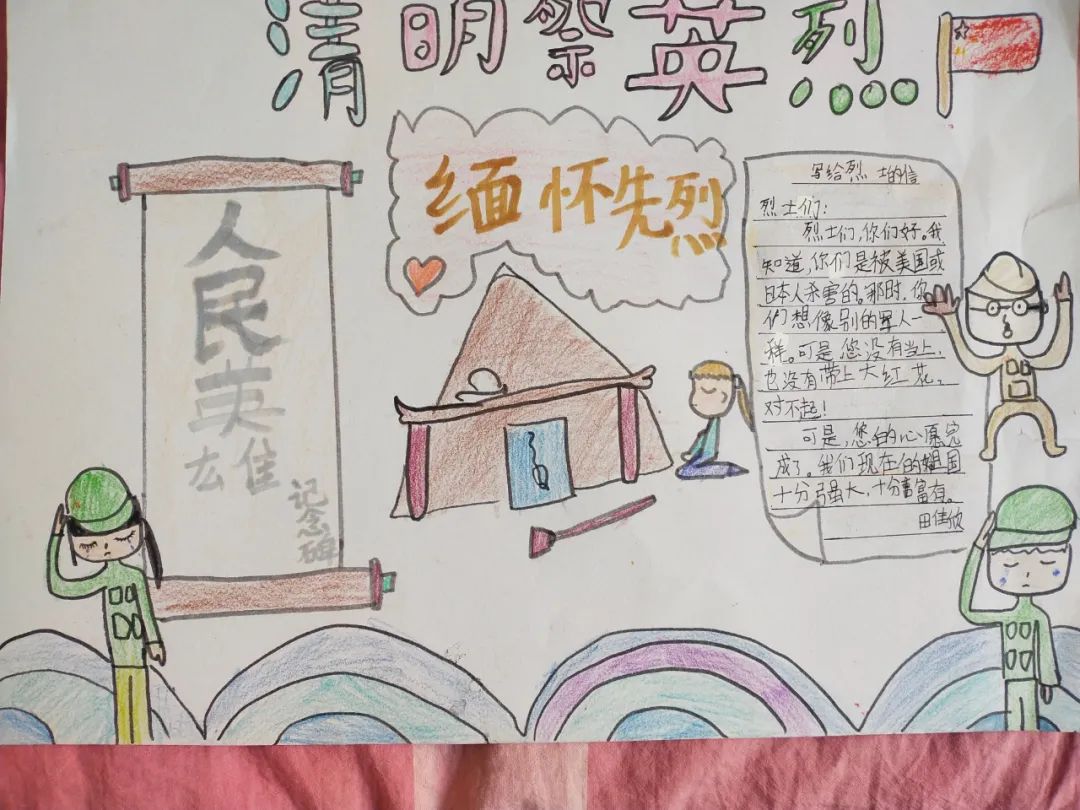 清明祭英烈
缅怀先烈
人民英雄
记念碑
写给烈士的信
烈士们:
烈士们,你们好。我
知道,你们是被美国或
日本人杀害的。那时,你
们想像别的军人一
样。可是您没有当上,
也没有带上大红花,
对不起!
可是,您的心愿完
成了。我们现在的祖国
十分强大,十分富有。
田佳欣